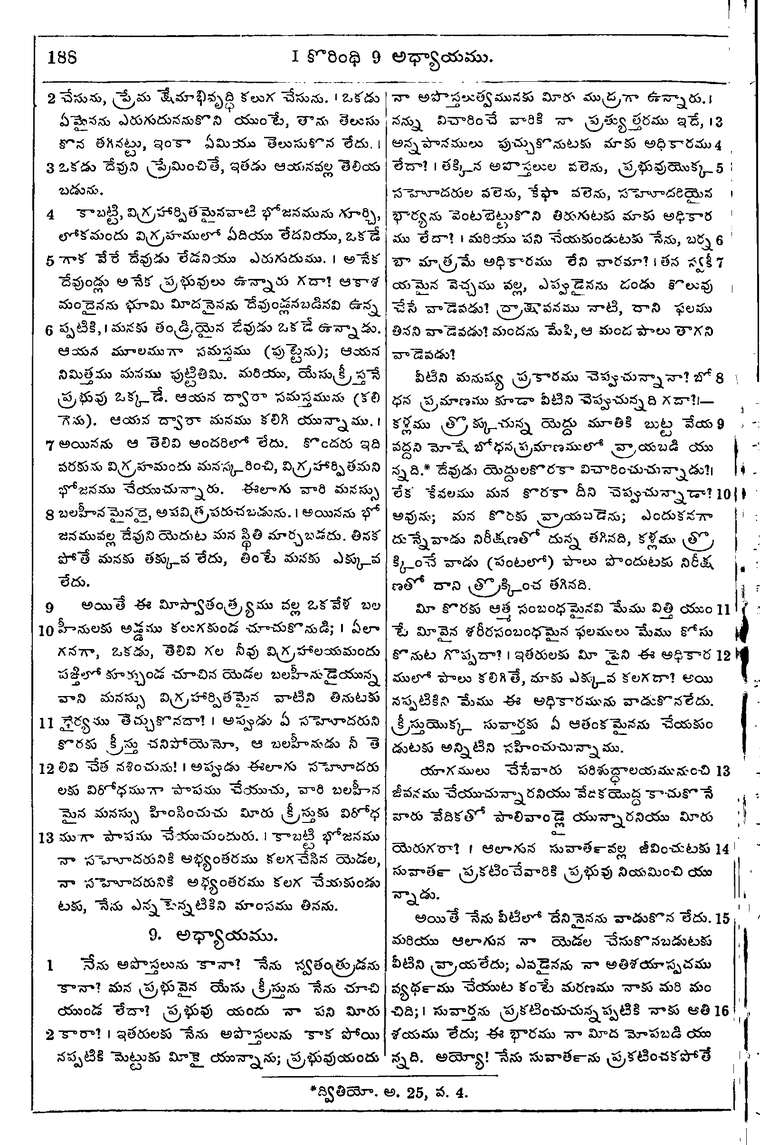 188
I కొరింథి 9 అధ్యాయము.
2 చేసును, ప్రేమ క్షేమాభివృద్ధి కలుగ చేసును. । ఒకడు
ఏమైనను ఎరుగుదుననుకొని యుంటే, తాను తెలుసు
కొన తగినట్టు, ఇంకా ఏమియు తెలుసుకొన లేదు. ।
3 ఒకడు దేవుని ప్రేమించితే, ఇతడు ఆయనవల్ల తెలియ
బడును.
4 కాబట్టి, విగ్రహార్పితమైనవాటి భోజనమును గూర్చి,
లోకమందు విగ్రహములో ఏదియు లేదనియు, ఒకడే
5 గాక వేరే దేవుడు లేడనియు ఎరుగుదుము. । అనేక
దేవుండ్లు అనేక ప్రభువులు ఉన్నారు గదా? ఆకాశ
మందైనను భూమి మీదనైనను దేవుండ్లనబడినవి ఉన్న
6 ప్పటికి, । మనకు తండ్రియైన దేవుడు ఒకడే ఉన్నాడు.
ఆయన మూలముగా సమస్తము (పుట్టెను); ఆయన
నిమిత్తము మనము పుట్టితిమి. మరియు, యేసుక్రీస్తనే
ప్రభువు ఒక్కడే. ఆయన ద్వారా సమస్తమును (కలి
గెను). ఆయన ద్వారా మనము కలిగి యున్నాము. ।
7 అయినను ఆ తెలివి అందరిలో లేదు. కొందరు ఇది
వరకును విగ్రహమందు మనస్కరించి, విగ్రహార్పితమని
భోజనము చేయుచున్నారు. ఈలాగు వారి మనస్సు
8 బలహీనమైనదై, అపవిత్రపరుచబడును. । అయినను భో
జనమువల్ల దేవుని యెదుట మన స్థితి మార్చబడదు. తినక
పోతే మనకు తక్కువ లేదు, తింటే మనకు ఎక్కువ
లేదు.
9 అయితే ఈ మీస్వాతంత్ర్యము వల్ల ఒకవేళ బల
10 హీనులకు అడ్డము కలుగకుండ చూచుకొనుడి; । ఏలా
గనగా, ఒకడు, తెలివి గల నీవు విగ్రహాలయమందు
పఙ్తిలో కూర్చుండ చూచిన యెడల బలహీనుడైయున్న
వాని మనస్సు విగ్రహార్పితమైన వాటిని తినుటకు
11 ధైర్యము తెచ్చుకొనదా? । అప్పుడు ఏ సహోదరుని
కొరకు క్రీస్తు చనిపోయెనో, ఆ బలహీనుడు నీ తె
12 లివి చేత నశించును! । అప్పుడు ఈలాగు సహోదరు
లకు విరోధముగా పాపము చేయుచు, వారి బలహీన
మైన మనస్సు హింసించుచు మీరు క్రీస్తుకు విరోధ
13 ముగా పాపము చేయుచుందురు. । కాబట్టి భోజనము
నా సహోదరునికి అభ్యంతరము కలగచేసిన యెడల,
నా సహోదరునికి అభ్యంతరము కలగ చేయకుండు
టకు, నేను ఎన్నడెన్నటికిని మాంసము తినను.
9. అధ్యాయము.
1 నేను అపొస్తలును కానా? నేను స్వతంత్రుడను
కానా? మన ప్రభువైన యేసు క్రీస్తును నేను చూచి
యుండ లేదా? ప్రభువు యందు నా పని మీరు
2 కారా? । ఇతరులకు నేను అపొస్తలును కాక పోయి
నప్పటికి మెట్టుకు మీకై యున్నాను; ప్రభువుయందు
నా అపొస్తలుత్వమునకు మీరు ముద్రగా ఉన్నారు. ।
నన్ను విచారించే వారికి నా ప్రత్యుత్తరము ఇదే, ।3
అన్నపానములు పుచ్చుకొనుటకు మాకు అధికారము 4
లేదా? । తక్కిన అపొస్తలుల వలెను, ప్రభువుయొక్క 5
సహోదరుల వలెను, కేఫా వలెను, సహోదరియైన
భార్యను వెంటబెట్టుకొని తిరుగుటకు మాకు అధికార
ము లేదా? । మరియు పని చేయకుండుటకు నేను, బర్న 6
బా మాత్రమే అధికారము లేని వారమా? । తన స్వకీ 7
యమైన వెచ్చము వల్ల, ఎప్పుడైనను దండు కొలువు
చేసే వాడెవడు? ద్రాక్షావనము నాటి, దాని ఫలము
తినని వాడెవడు? మందను మేపి, ఆ మంద పాలు తాగని
వాడెవడు?
వీటిని మనుష్య ప్రకారము చెప్పుచున్నానా? బో 8
ధన ప్రమాణము కూడా వీటిని చెప్పుచున్నది గదా? ।—
కళ్లము త్రొక్కుచున్న యెద్దు మూతికి బుట్ట వేయ 9
వద్దని మోషే బోధనప్రమాణములో వ్రాయబడి యు
న్నది.* దేవుడు యెద్దులకొరకా విచారించుచున్నాడు? ।
లేక కేవలము మన కొరకా దీని చెప్పుచున్నాడా? 10
అవును; మన కొరకు వ్రాయబడెను; ఎందుకనగా
దున్నేవాడు నిరీక్షణతో దున్న తగినది, కళ్లము త్రొ
క్కించే వాడు (పంటలో) పాలు పొందుటకు నిరీక్ష
ణతో దాని త్రొక్కించ తగినది.
మీ కొరకు ఆత్మ సంబంధమైనవి మేము విత్తి యుం 11
టే మీవైన శరీరసంబంధమైన ఫలములు మేము కోసు
కొనుట గొప్పదా? । ఇతరులకు మీ పైని ఈ అధికార 12
ములో పాలు కలిగితే, మాకు ఎక్కువ కలగదా? అయి
నప్పటికిని మేము ఈ అధికారమును వాడుకొనలేదు.
క్రీస్తుయొక్క సువార్తకు ఏ ఆతంకమైనను చేయకుం
డుటకు అన్నిటిని సహించుచున్నాము.
యాగములు చేసేవారు పరిశుద్ధాలయమునుంచి 13
జీవనము చేయుచున్నారనియు వేదికయొద్ద కాచుకొనే
వారు వేదికతో పాలివాండ్లై యున్నారనియు మీరు
యెరుగరా? । ఆలాగున సువార్తవల్ల జీవించుటకు 14
సువార్త ప్రకటించేవారికి ప్రభువు నియమించి యు
న్నాడు.
అయితే నేను వీటిలో దేనినైనను వాడుకొన లేదు. 15
మరియు ఆలాగున నా యెడల చేసుకొనబడుటకు
వీటిని వ్రాయలేదు; ఎవడైనను నా అతిశయాస్పదము
వ్యర్థము చేయుట కంటే మరణము నాకు మరి మం
చిది; । సువార్తను ప్రకటించుచున్నప్పటికి నాకు అతి 16
శయము లేదు; ఈ భారము నా మీద మోపబడి యు
న్నది. అయ్యో! నేను సువార్తను ప్రకటించకపోతే
*ద్వితియో. అ. 25, వ. 4.